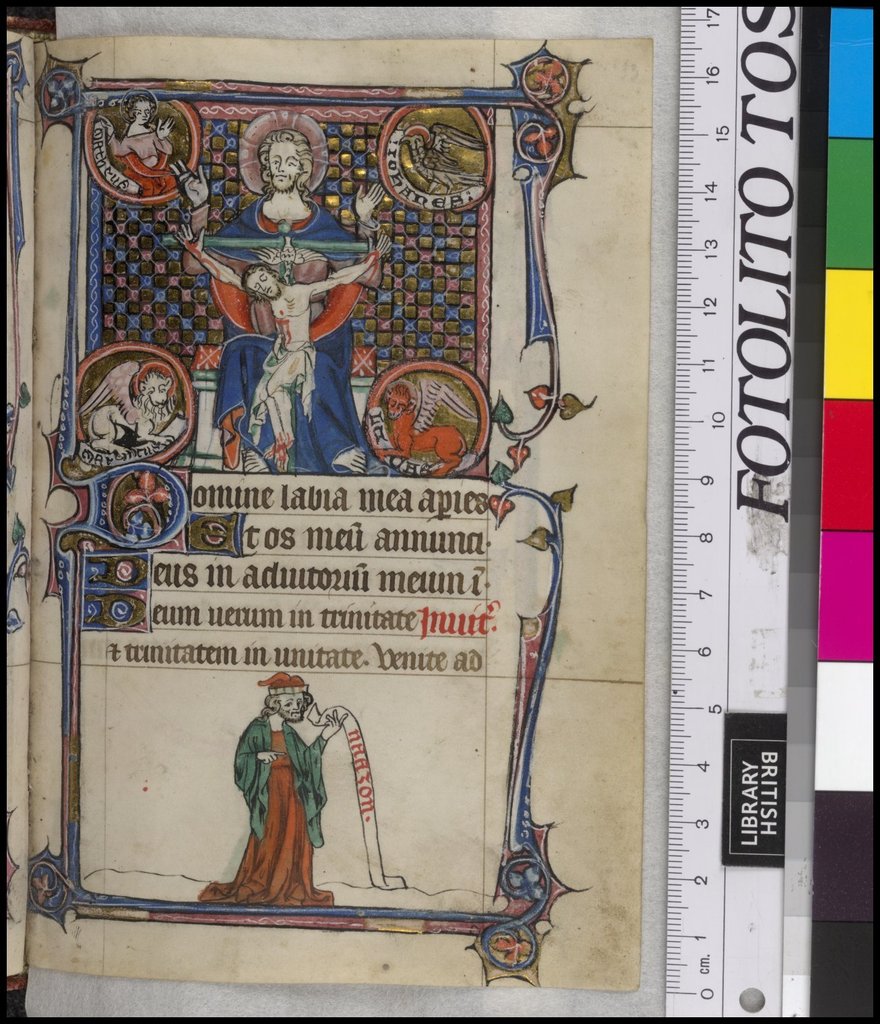 MATHEUS
IOHANES.
MARCUS
LUCAS
Domine labia mea apries
Et os meū annunci.
Deus in adiutoriū meum ī.
Deum uerum in trinitate Inuit.
& trinitatem in unitate. Venite ad
naazon.
FOTOLITO TOS
BRITISH
LIBRARY
17
16
15
14
13
12
11
10
9
8
7
6
5
4
3
2
1
0 cm.